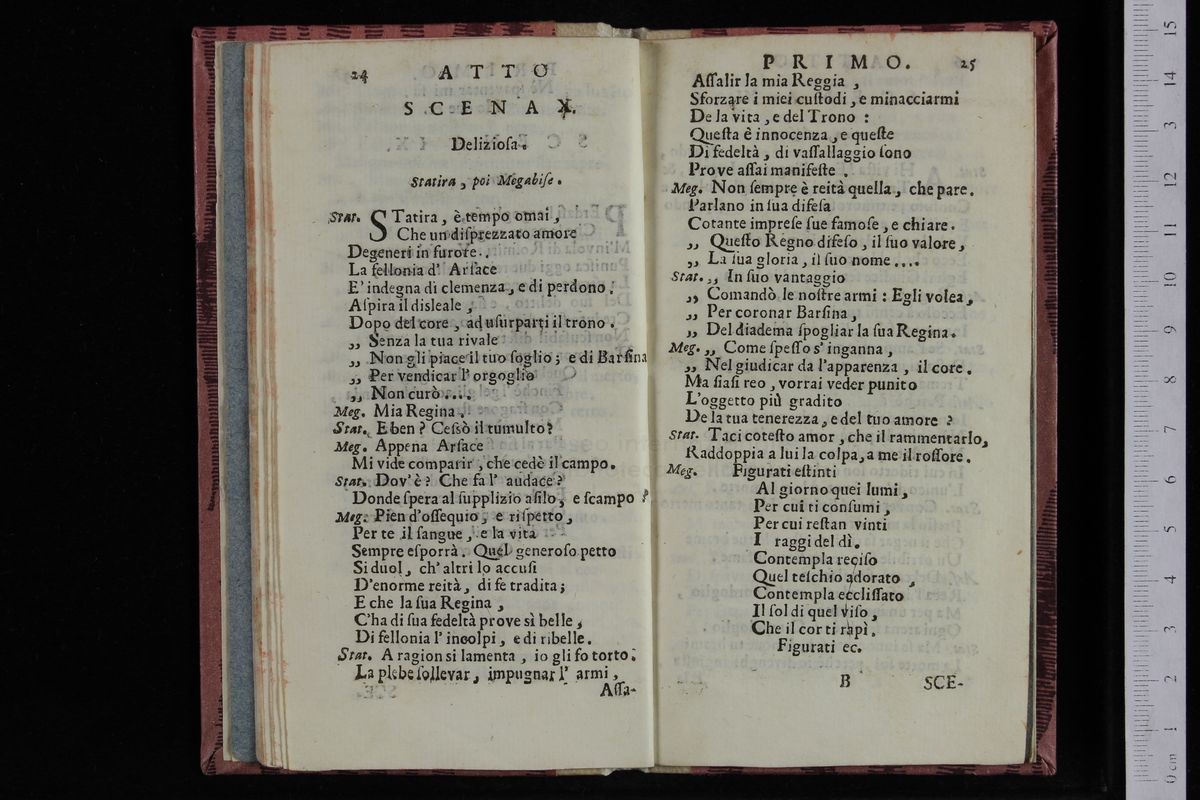 24 ATTO
SCENA X.
Delizioſa.
Statira, poi Megabiſe.
Stat. STatira, è tempo omai,
Che un diſprezzato amore
Degeneri in furore.
La fellonia d' Arſace
E' indegna di clemenza, e di perdono.
Aſpira il disleale,
Dopo del core, ad uſurparti il trono.
,, Senza la tua rivale
,, Non gli piace il tuo ſoglio; e di Barſina
,, Per vendicar l' orgoglio
,, Non curò....
Meg. Mia Regina.
Stat. E ben? Ceſsò il tumulto?
Meg. Appena Arſace
Mi vide comparir, che cedè il campo.
Stat. Dov' è? Che fa l' audace?
Donde ſpera al ſupplizio aſilo, e ſcampo?
Meg. Pien d'oſſequio, e riſpetto,
Per te il ſangue, e la vita
Sempre eſporrà. Quel generoſo petto
Si duol, ch' altri lo accuſi
D'enorme reità, di fe tradita;
E che la ſua Regina,
C'ha di ſua fedeltà prove sì belle,
Di fellonia l' incolpi, e di ribelle.
Stat. A ragion si lamenta, io gli fo torto.
La plebe ſollevar, impugnar l' armi,
Aſſa-
PRIMO. 25
Aſſalir la mia Reggia,
Sforzare i miei cuſtodi, e minacciarmi
De la vita, e del Trono:
Queſta è innocenza, e queſte
Di fedeltà, di vaſſallaggio ſono
Prove aſſai manifeſte.
Meg. Non ſempre è reità quella, che pare.
Parlano in ſua difeſa
Cotante impreſe ſue famoſe, e chiare.
,, Queſto Regno difeſo, il ſuo valore,
,, La ſua gloria, il ſuo nome....
Stat. ,, In ſuo vantaggio
,, Comandò le noſtre armi: Egli volea,
,, Per coronar Barſina,
,, Del diadema ſpogliar la ſua Regina.
Meg. ,, Come ſpeſſo s' inganna,
,, Nel giudicar da l'apparenza, il core.
Ma ſiaſi reo, vorrai veder punito
L'oggetto più gradito
De la tua tenerezza, e del tuo amore?
Stat. Taci coteſto amor, che il rammentarlo,
Raddoppia a lui la colpa, a me il roſſore.
Meg. Figurati eſtinti
Al giorno quei lumi,
Per cui ti conſumi,
Per cui reſtan vinti
I raggi del dì.
Contempla reciſo
Quel teſchio adorato,
Contempla eccliſſato
Il ſol di quel viſo,
Che il cor ti rapì.
Figurati ec.
B SCE-